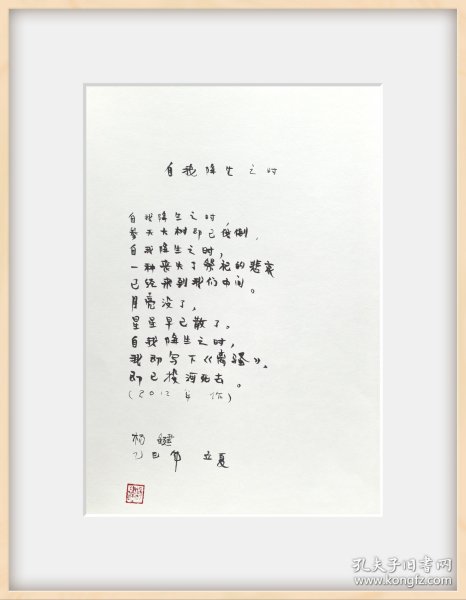 自我降生之时
自我降生之时，
参天大树即已伐倒，
自我降生之时，
一种丧失了祭祀的悲哀
已经来到我们中间。
月亮没了，
星星早已散了。
自我降生之时，
我即写下《离骚》，
即已投河死去。
(2012年 作)
杨键
乙巳年 立夏
孔夫子旧书网
www.kongfz.com